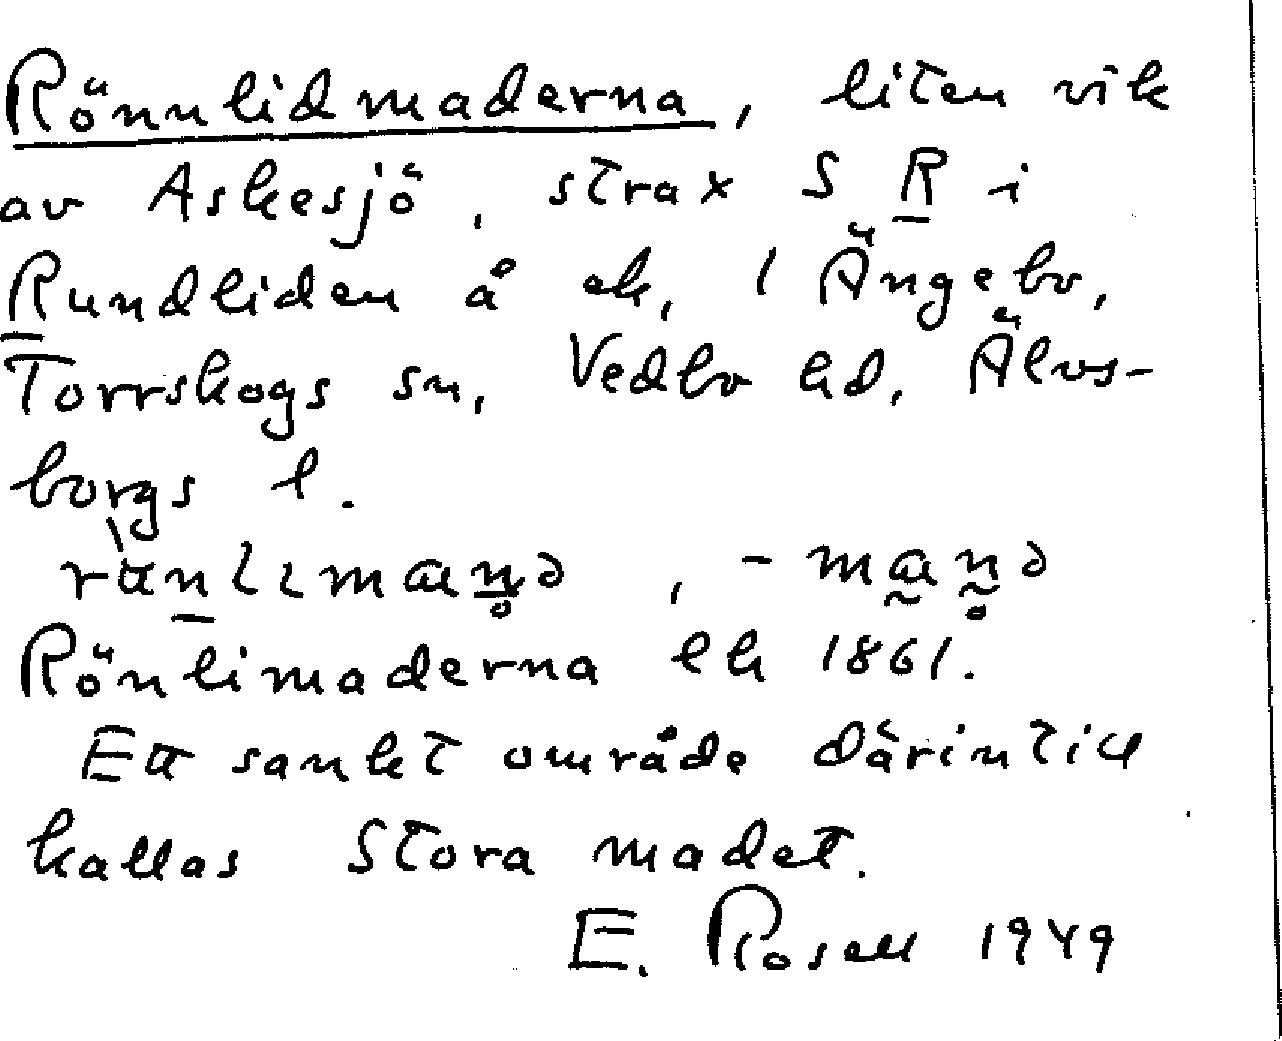 Rönnlidmaderna, liten vik
av Askesjö, strax S R i
Rundliden å ek, 1 Ängebo,
Torrskogs sn, Vedbo hd, Älvs-
borgs l.
Rönlimaderna ek 1861.
Ett sankt område därintill
kallas Stora madet.
E. Rosell 1949